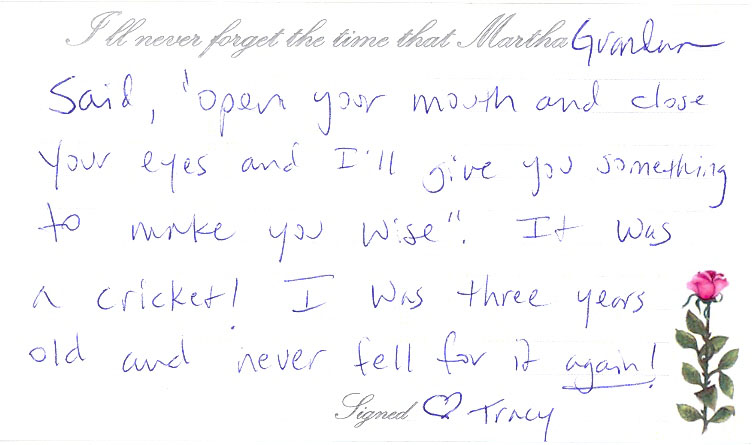 I'll never forget the time that Martha Grandma
Said, "open your mouth and close
your eyes and I'll give you something
to make you wise". It was
a cricket! I was three years
old and never fell for it again!
Signed ♡ Tracy